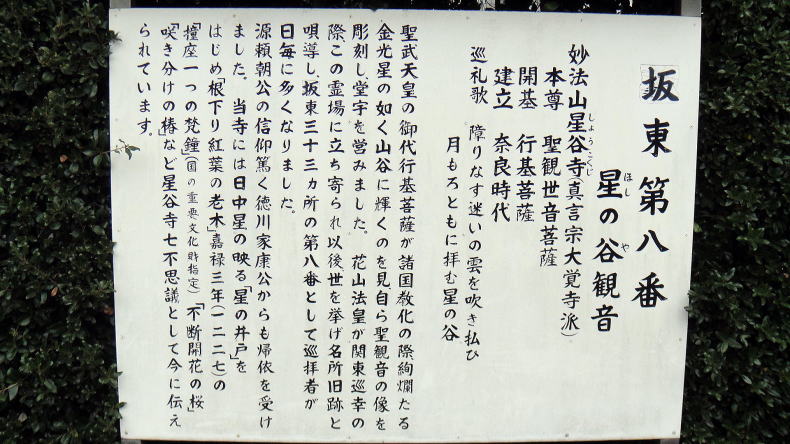 坂東第八番
星の谷観音
ほし や
妙法山星谷寺(真言宗大覚寺派)
しょうこくじ
本尊 聖観世音菩薩
開基 行基菩薩
建立 奈良時代
巡礼歌 障りなす迷いの雲を吹き払ひ
月もろともに拝む星の谷
聖武天皇の御代行基菩薩が諸国教化の際絢爛たる
金光星の如く山谷に輝くのを見自ら聖観音の像を
彫刻し、堂宇を営みました。花山法皇が関東巡幸の
際この霊場に立ち寄られ以後、世を挙げ名所旧跡と
唄導し、坂東三十三ヵ所の第八番として巡拝者が
日毎に多くなりました。
源頼朝公の信仰篤く徳川家康公からも帰依を受け
ました。当寺には日中星の映る「星の井戸」を
はじめ「根下り紅葉の老木」嘉禄三年(一二二七)の
「撞座一つの梵鐘」(国の重要文化財指定)「不断開花の桜」
「咲き分けの椿」など星谷寺七不思議として今に伝え
られています。